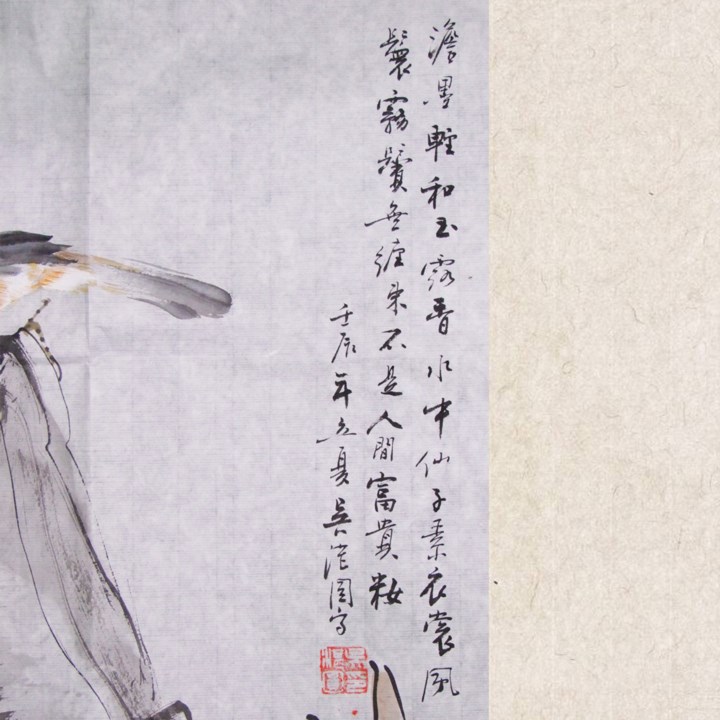 澹墨輕和玉露香水中仙子素衣裳風
鬟霧鬢無纏束不是人間富貴籹
壬辰年立夏吳園写